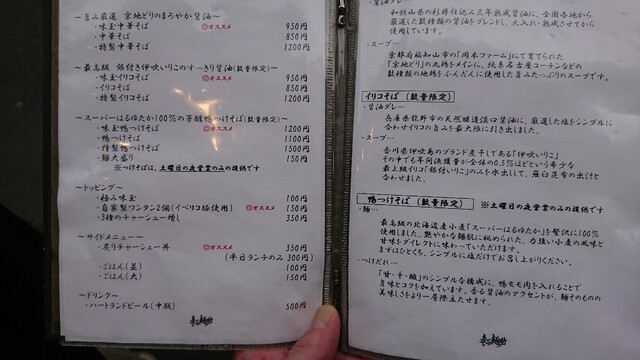 ～旨み厳選 京地どりのまろやか醤油～
・味玉中華そば ◎オススメ 950円
・中華そば 850円
・特製中華そば 1200円
～最高級 銀付き伊吹いりこのすっきり醤油(数量限定)～
・味玉イリコそば ◎オススメ 950円
・イリコそば 850円
・特製イリコそば 1200円
～スーパーはるゆたか100%の芳醇鴨つけそば(数量限定)～
・味玉鴨つけそば ◎オススメ 1200円
・鴨つけそば 1100円
・特製鴨つけそば 1500円
・麺大盛り 150円
※つけそばは、土曜日の夜営業のみの提供です
～トッピング～
・極み味玉 100円
・自家製ワンタン2個(イベリコ豚使用) ◎オススメ 150円
・3種のチャーシュー増し 350円
～サイドメニュー～
・炙りチャーシュー丼 ◎オススメ 350円
(平日ランチのみ 300円)
・ごはん(並) 100円
・ごはん(大) 150円
～ドリンク～
・ハートランドビール(中瓶) 500円
・醤油ダレ…
和歌山県の杉樽仕込み三年熟成醤油に、全国各地から
厳選した数種類の醤油をブレンドし、火入れ・熟成させてから
使用しています。
・スープ…
京都府福知山市の「岡本ファーム」にて育てられた
「京地どり」の丸鶏をメインに、純系名古屋コーチンなどの
数種類の地鶏をふんだんに使用した旨みたっぷりのスープです。
イリコそば (数量限定)
・醤油ダレ…
兵庫県龍野市の天然醸造淡口醤油に、厳選した塩をシンプルに
合わせイリコの旨みを最大限に引き出しました。
・スープ…
香川県伊吹島のブランド煮干しである「伊吹いりこ」
その中でも年間漁獲量が全体の0.5%ほどという希少な
最上級イリコ「銀付いりこ」のみを水出しして、羅臼昆布の出汁と
合わせました。
鴨つけそば (数量限定) ※土曜日の夜営業のみの提供です
・麺…
最高級の北海道産小麦「スーパーはるゆたか」を贅沢に100%
使用しました。艶やかな麺肌に秘められた、力強い小麦の風味と
甘味をダイレクトに味わっていただけます。
まずはひとくち、シンプルに塩だけでお召し上がりください。
・つけだれ…
「甘・辛・酸」のシンプルな構成に、鴨モモ肉を入れることで
旨味とコクを加えています。香る醤油のアクセントが、麺そのものの
美味しさをより一層際立たせます。